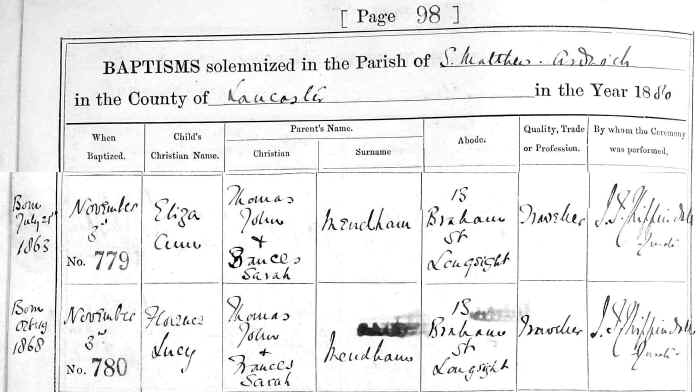 [ Page 98 ]
BAPTISMS solemnized in the Parish of S. Matthew. Ardwick
in the County of Lancaster in the Year 1880
When Baptized.
Child's Christian Name.
Parent's Name.
Christian
Surname
Abode.
Quality, Trade or Profession.
By whom the Ceremony was performed.
Born
July 21st
1863
November
3rd
No. 779
Eliza
Ann
Thomas
John
+
Frances
Sarah
Mendham
13
Braham
St
Longsight
Traveller
Born
1868
November
3rd
No. 780
Florence
Lucy
Thomas
John
+
Frances
Sarah
Mendham
13
Braham
St
Longsight
Traveller